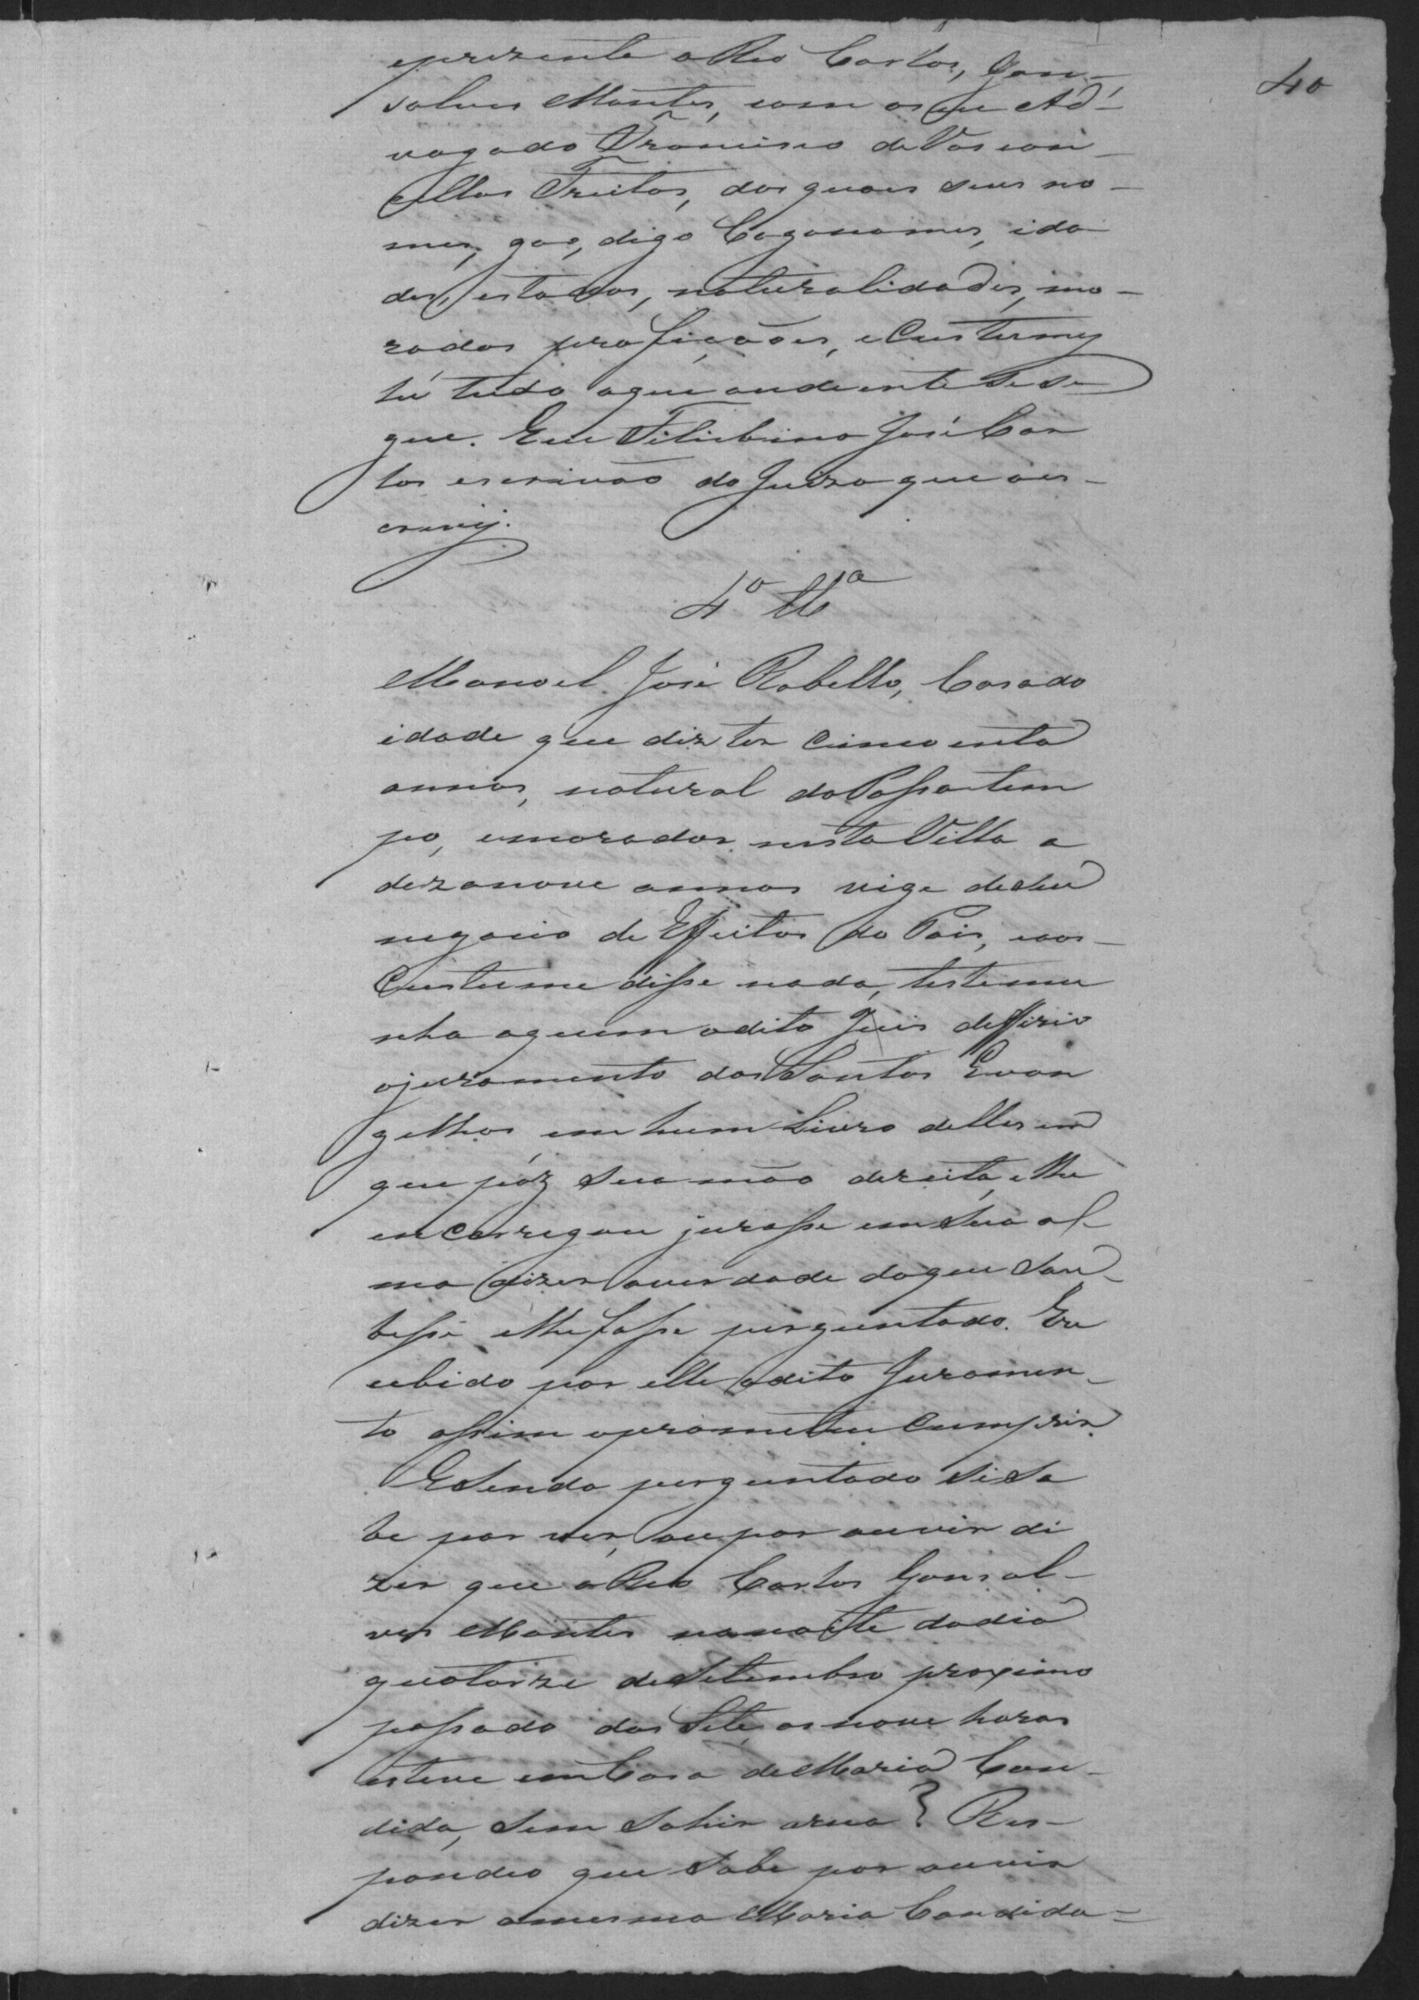 40
eprezente o Reo Carlos Gon-
salves Montes, com o seu Ad-
vogado Francisco de Vascon-
cellos Freitas, dos quaes seus no-
mes, gno, digo Cognomes, ida
des, estados, naturalidades, mo-
radas profições, e Custumes
hé tudo aque andiente se se-
gue. Eu Felisbino José Car
los escrivão do Juizo que o es-
crevy.
4ª Tª
Manoel José Rabello, Casado
idade que diz ter cincoenta
annos, natural do Passatem
po, emorador nesta Villa a
dezanove annos vive de seu
negocio de Effeitos do Pais, eaos
Custume disse nada, testemu
nha aquem odito Juis defferio
ojuramento dos Santos Evan
gelhos em hum Livro delles em
que pôz sua mão dereita, elhe
encarregou jurasse em sua al-
ma dizer averdade doque Sou-
besse elhe fosse perguntado. Ere
cebido por elle odito Juramen-
to assim oprometeu cumprir.
Esendo perguntado se Sa
be por ver, ou por ouvir di
zer que o Reo Carlos Gonsal-
ves Montes nanoite dodia
quatorze de Setembro proximo
passado das Sete as nove horas
esteve em Casa de Maria Can-
dida, sem sahir arua? Res-
pondeo que Sabe por ouvir
dizer amesma Maria Candida=